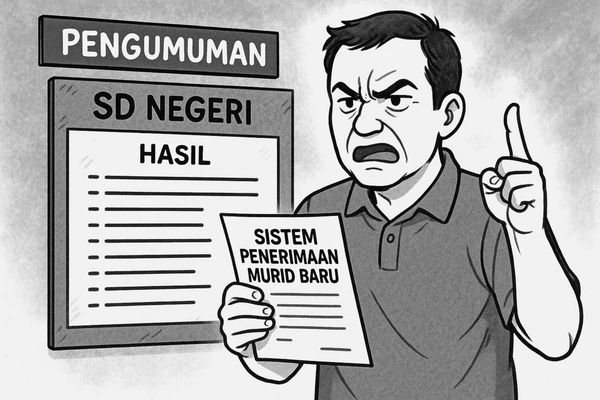 PENGUMUMAN
SD NEGERI
HASIL
SISTEM
PENERIMAAN
MURID BARU